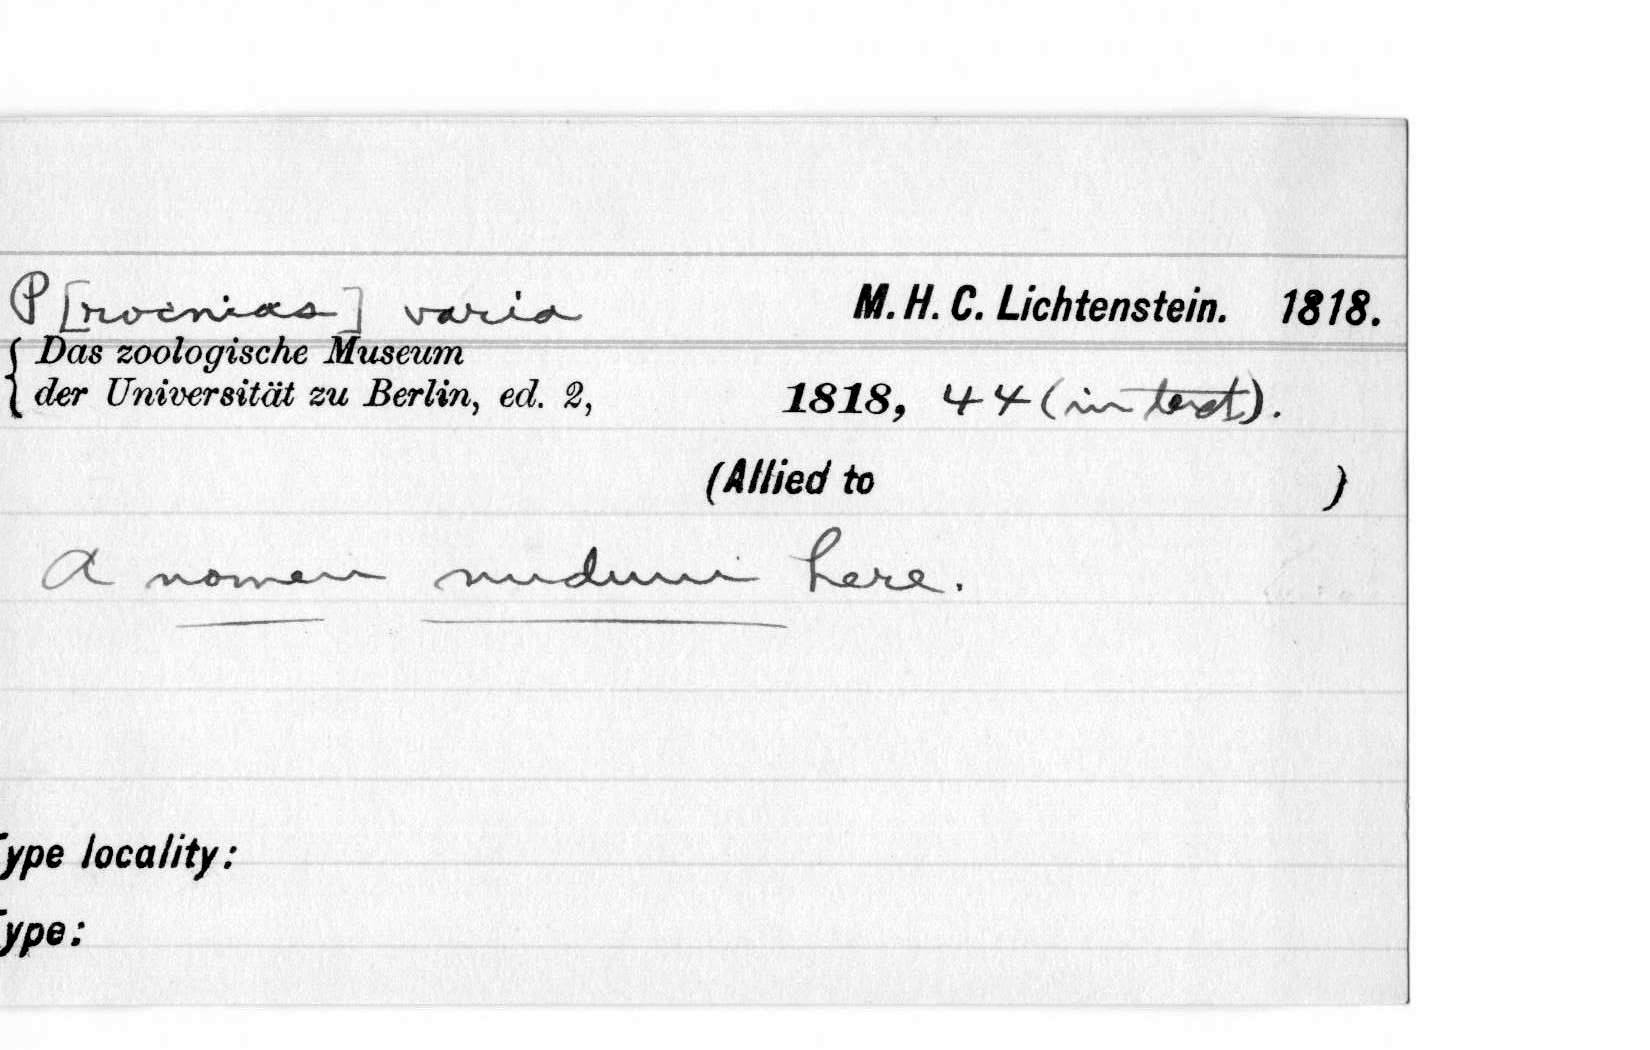 P[rocnias] varia M. H. C. Lichtenstein. 1818.
{ Das zoologische Museum
der Universität zu Berlin, ed. 2, 1818, 44 (in text).
(Allied to )
A nomen nudum here.
ype locality:
ype: